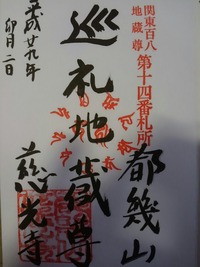 関東百八
地蔵尊
第十四番札所
都幾山
巡礼地蔵尊
慈光寺
平成廿九年
卯月二日